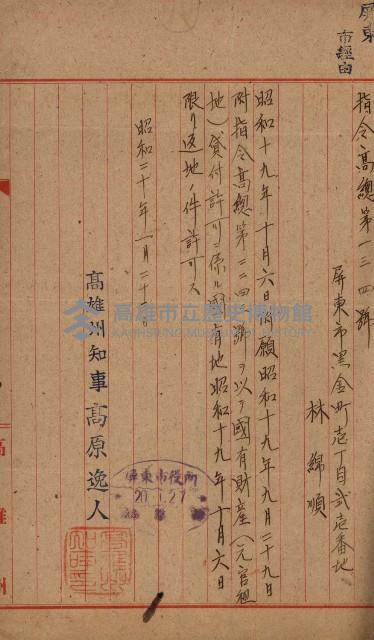 屏東
市經由
指令高總第一三四號
屏東市黑金町壱丁目弍壱番地
林綿順
昭和十九年十月六日附願昭和十九年九月二十九日
附指令高總第二二四號ヲ以テ國有財産(元官租
地)貸付許可ニ係ル國有地昭和十九年十月六日
限リ返地ノ件許可ス
昭和二十年一月二十二日
高雄州知事高原逸人
屏東市役所
20.1.27
高雄市立歷史博物館
KAOHSIUNG MUSEUM OF HISTORY
高雄州